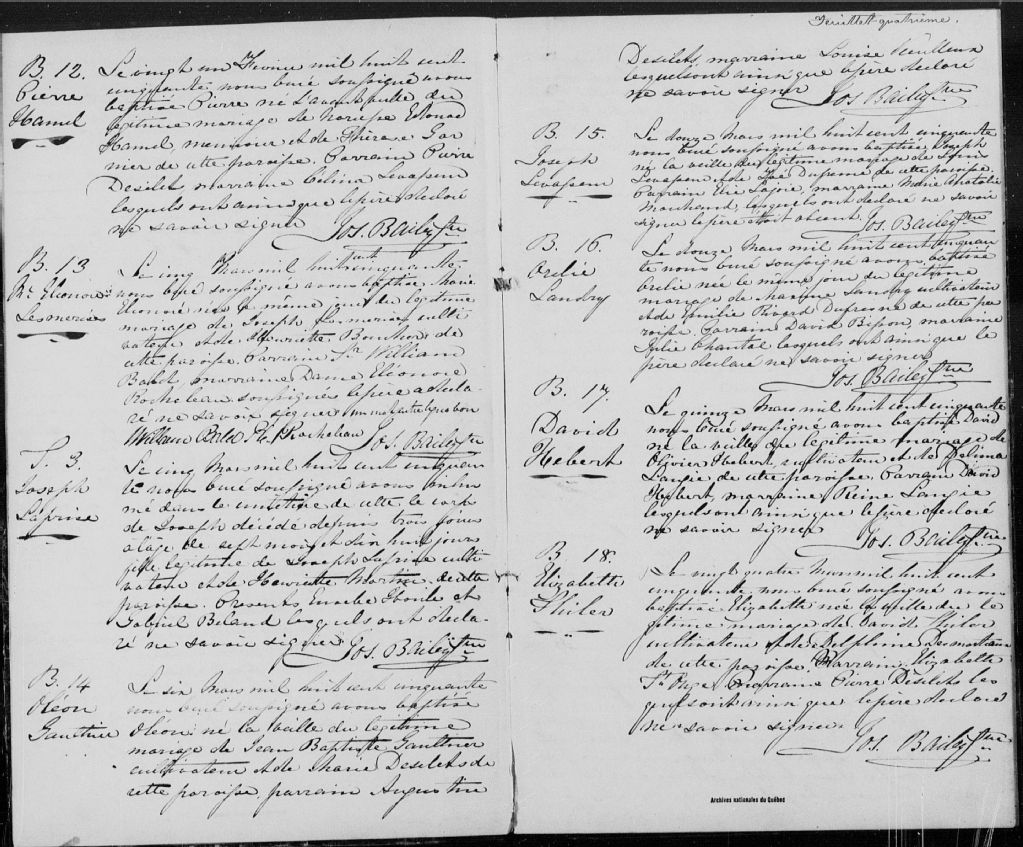 B. 12.
Pierre
Hamel
Le vingt un Fevrier mil huit cent
cinquante nous curé soussigné avons
baptisé Pierre né l'avant veille du
légitime mariage de Edouard
Hamel menuisier et de Thirase Gar
nier de cette paroisse. Parrain Pierre
Desilets, marraine Célina Levasseur
lesquels ont ainsi que le père déclaré
ne savoir signer
Jos. Bailey ptre
B. 13
Me. Eleonore
Lesmerises
Le cinq Mars mil huit cent cinquante
nous curé soussigné avons baptisé Marie
Eleonore née le même jour du légitime
mariage de Joseph Lesmerises culti
vateur et de Henriette de
cette paroisse. Parrain Sr. William
marraine Dame Eléonore
Rocheleau soussignés le père a décla
ré ne savoir signer
William Rocheleau Jos. Bailey ptre
S. 3.
Joseph
Laprise
Le cinq Mars mil huit cent cinquan
te nous curé soussigné avons inhu
mé dans le cimetière de cette le corps
de Joseph décédé depuis trois jours
à l'âge de sept mois et dix huit jours
légitime de Joseph Laprise culti
vateur et de Henriette Martin de cette
paroisse. Presents et
Gabriel Beland lesquels ont décla
ré ne savoir signer
Jos. Bailey ptre
B. 14
Oléon
Gauthier
Le six Mars mil huit cent cinquante
nous curé soussigné avons baptisé
Oléon né la veille du légitime
mariage de Jean Baptiste Gauthier
cultivateur et de Marie Desilets de
cette paroisse, parrain Augustin
Feuillet quatrième.
Desilets, marraine Louise
lesquels ont ainsi que le père déclaré
ne savoir signer
Jos Bailey ptre
B. 15.
Joseph
Levasseur
Le douze Mars mil huit cent cinquante
nous curé soussigné avons baptisé Joseph
né la veille du légitime mariage de Louis
Levasseur et de Zoé Dufresne de cette paroisse.
Parrain Elie Lajoie, marraine Marie Anatolie
Marchand, lesquels ont déclaré ne savoir
signer le père étoit absent. Jos. Bailey ptre
B. 16.
Orélie
Landry
Le douze Mars mil huit cent cinquan
te nous curé soussigné avons baptisé
Orélie née le même jour du légitime
mariage de Landry cultivateur
et de Emilie Rivard Dufresne de cette pa
roisse. Parrain David Bisson, marraine
Julie Chantal lesquels ont ainsi que le
père déclaré ne savoir signer
Jos. Bailey ptre
B. 17.
David
Hebert
Le quinze Mars mil huit cent cinquante
nous curé soussigné avons baptisé David
né la veille du légitime mariage de
Olivier Hebert, cultivateur et de Delima
de cette paroisse. Parrain David
Hebert, marraine Reine
lesquels ont ainsi que le père déclaré
ne savoir signer
Jos. Bailey ptre
B 18.
Elizabeth
Thiler
Le vingt quatre Mars mil huit cent
cinquante nous curé soussigné avons
baptisé Elizabeth née la veille du lé
gitime mariage de David
cultivateur et de Delphine
de cette paroisse. Marraine Elizabeth
St. Onge Parrain Pierre Désilets les
quels ont ainsi que le père déclaré
ne savoir signer
Jos. Bailey ptre
Archives nationales du Québec